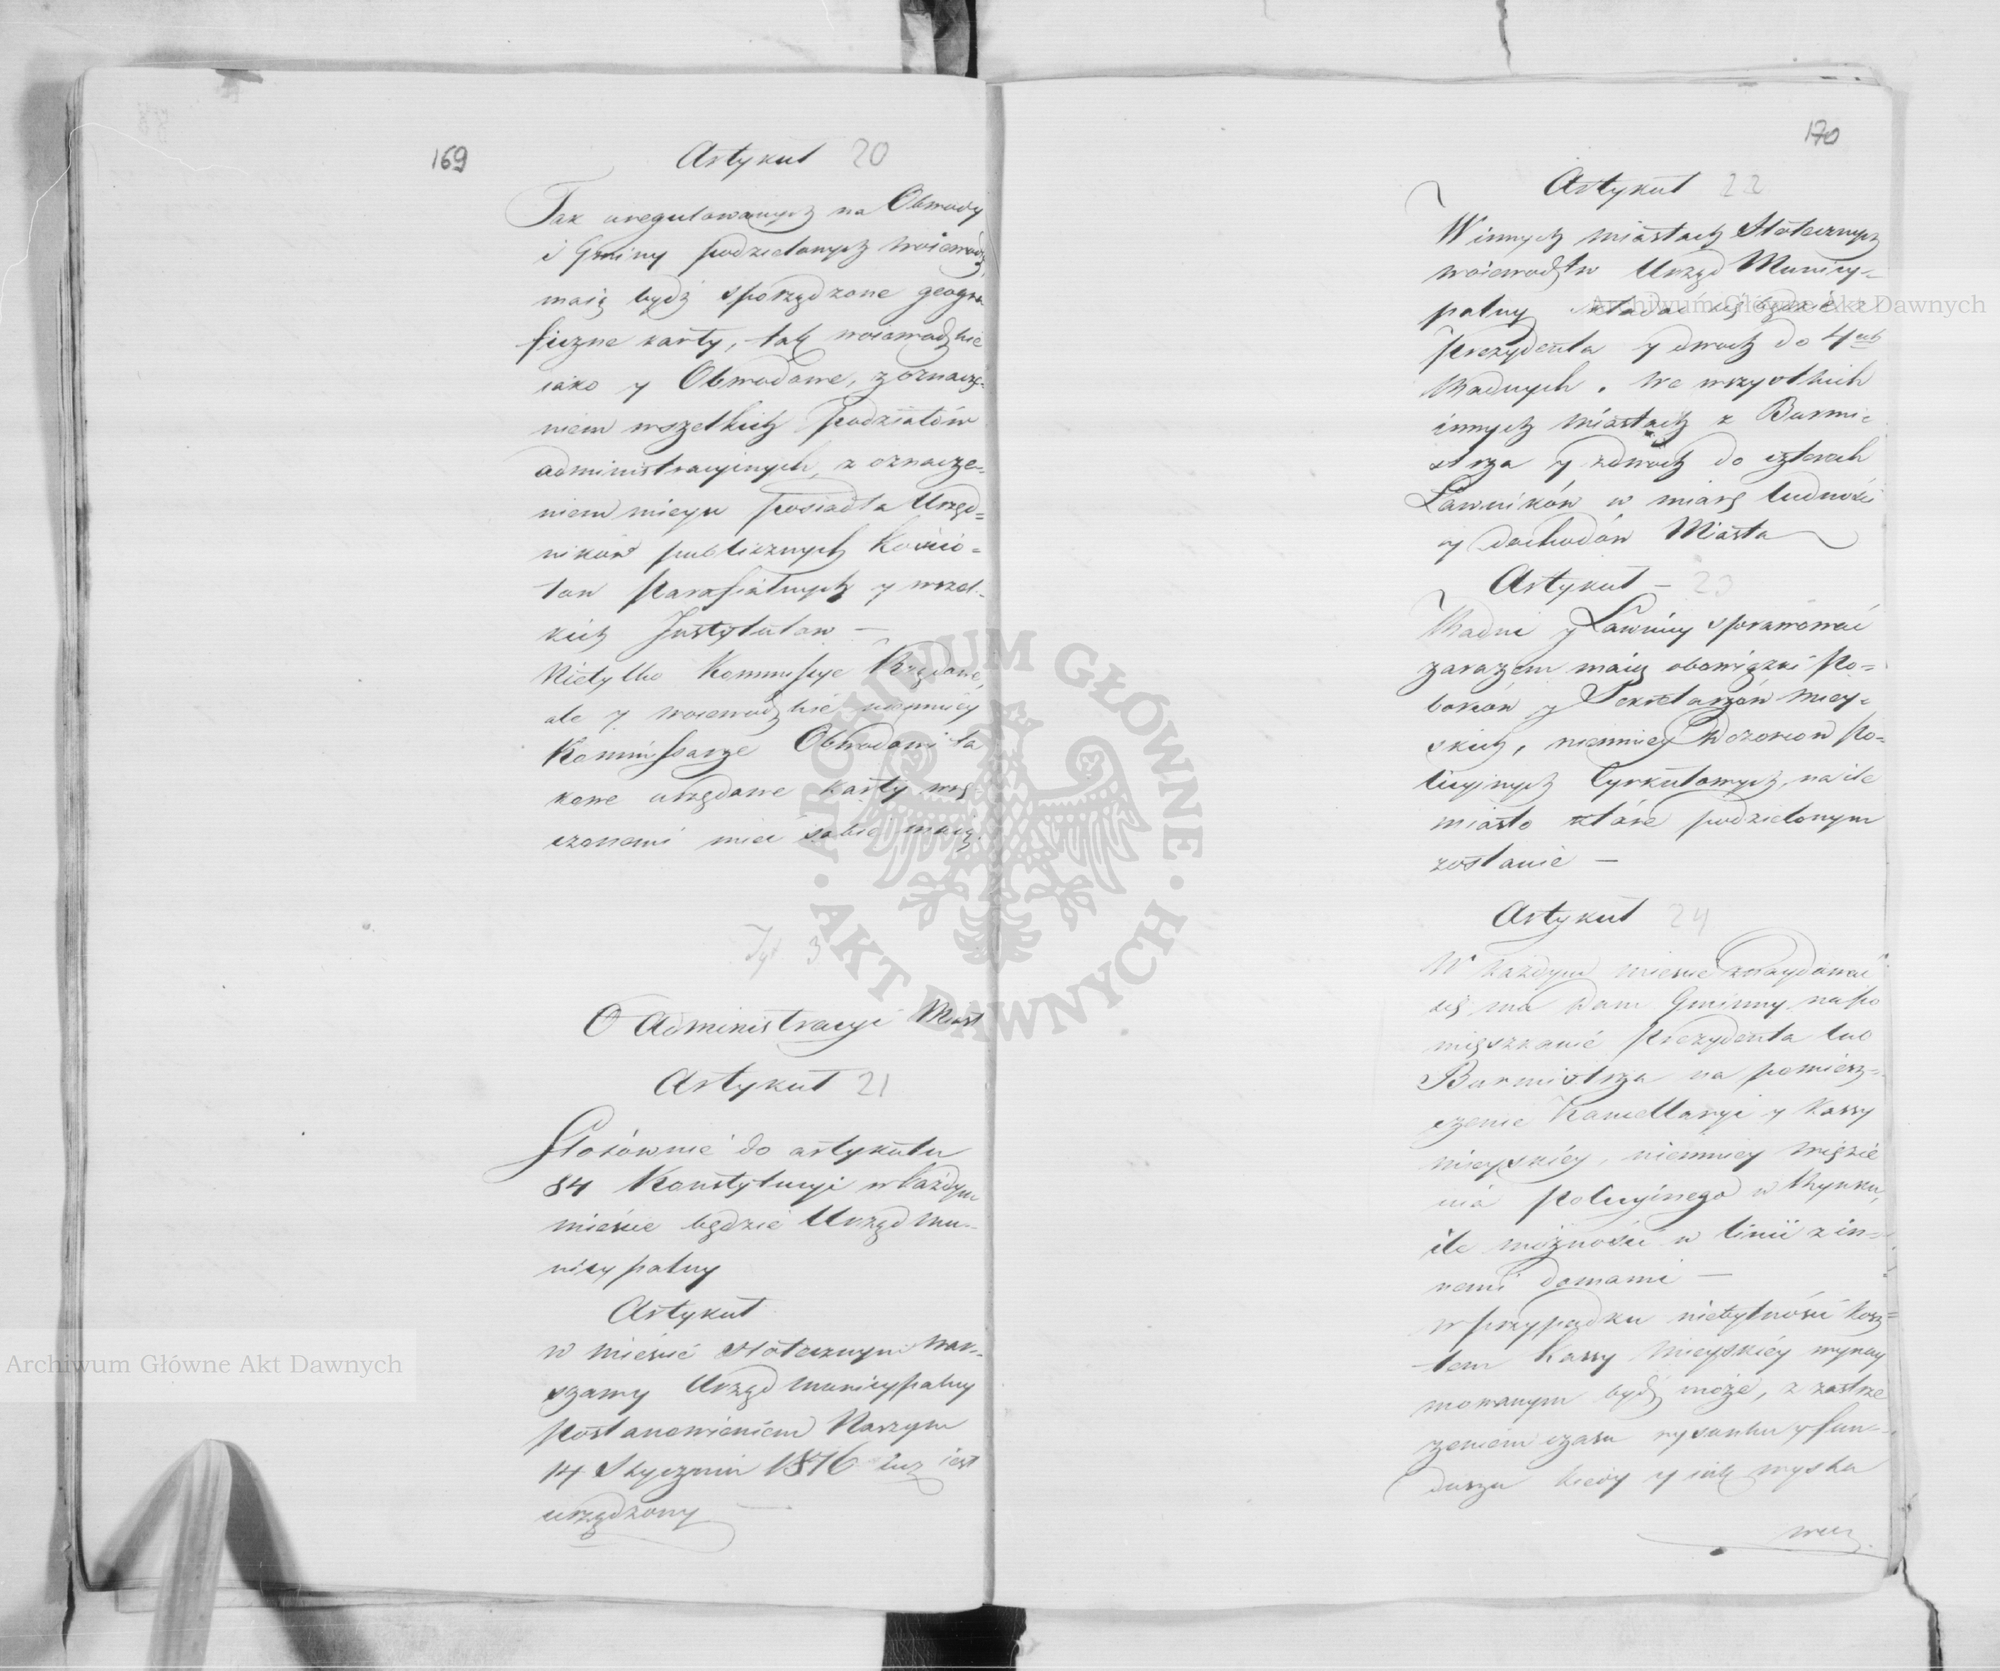 169
Artykuł 20
Tak uregulowanych na Obwody
i Gminy podzielonych woiewodz,
maią bydź sporządzone geogra
ficzne karty, tak woiewodzkie
iako y Obwodowe, z oznacze-
niem wszelkich podziałów
administracyinych, z oznacze-
niem mieysc posiadła Urzęd=
ników publicznych Kościo=
łow Parafialnych y wszel-
kich Instytutow —
Nietylko Kommissye Rządowe,
ale y woiewodzkie niemniey
Kommissarze Obwodowi ta
kowe urzędowe karty wrę
czonemi mieć sobie maią.
Tyt 3
O Administracyi Miast
Artykuł 21
Stosównie do artykułu
84 Konstytucyi w każdym
mieście będzie Urząd mu-
nicypalny
Artykuł
w mieście stołecznym War-
szawy Urząd municypalny
Postanowieniem Naszym
14 Stycznia 1816 iuż iest
urządzony —
170
Artykuł 22
W innych miastach Stołecznych
woiewodztw Urząd Municy-
palny składać się będzie z
Prezydenta y dwóch do 4ech
Radnych. We wszystkich
innych miastach z Burmi-
strza y z dwóch do czterech
Ławników w miarę ludności
y dochodów Miasta
Artykuł — 23
Radni y Ławnicy sprawować
zarazem maią obowiązki Po=
borców y Sekretarzów miey-
skich, niemniey Dozorców Po-
licyinych Cyrkułowych, na ile
miasto które podzielonym
zostanie —
Artykuł 24
W każdym mieście znaydować
się ma dom Gminny na po
mięszkanie Prezydenta lub
Burmistrza na pomiesz=
czenie Kancellaryi y Kassy
mieyskiey, niemniey więzie
nia Policyinego w Rynku,
ile możności w linii z in=
nemi domami —
w przypadku niebytności kosz=
tem Kassy Mieyskiey wynay
mowanym bydź może, z zastrze
żeniem czasu rysunku y fun-
duszu kiedy y iak wysta
Archiwum Główne Akt Dawnych
Archiwum Główne Akt Dawnych
ARCHIWUM GŁÓWNE · AKT DAWNYCH ·